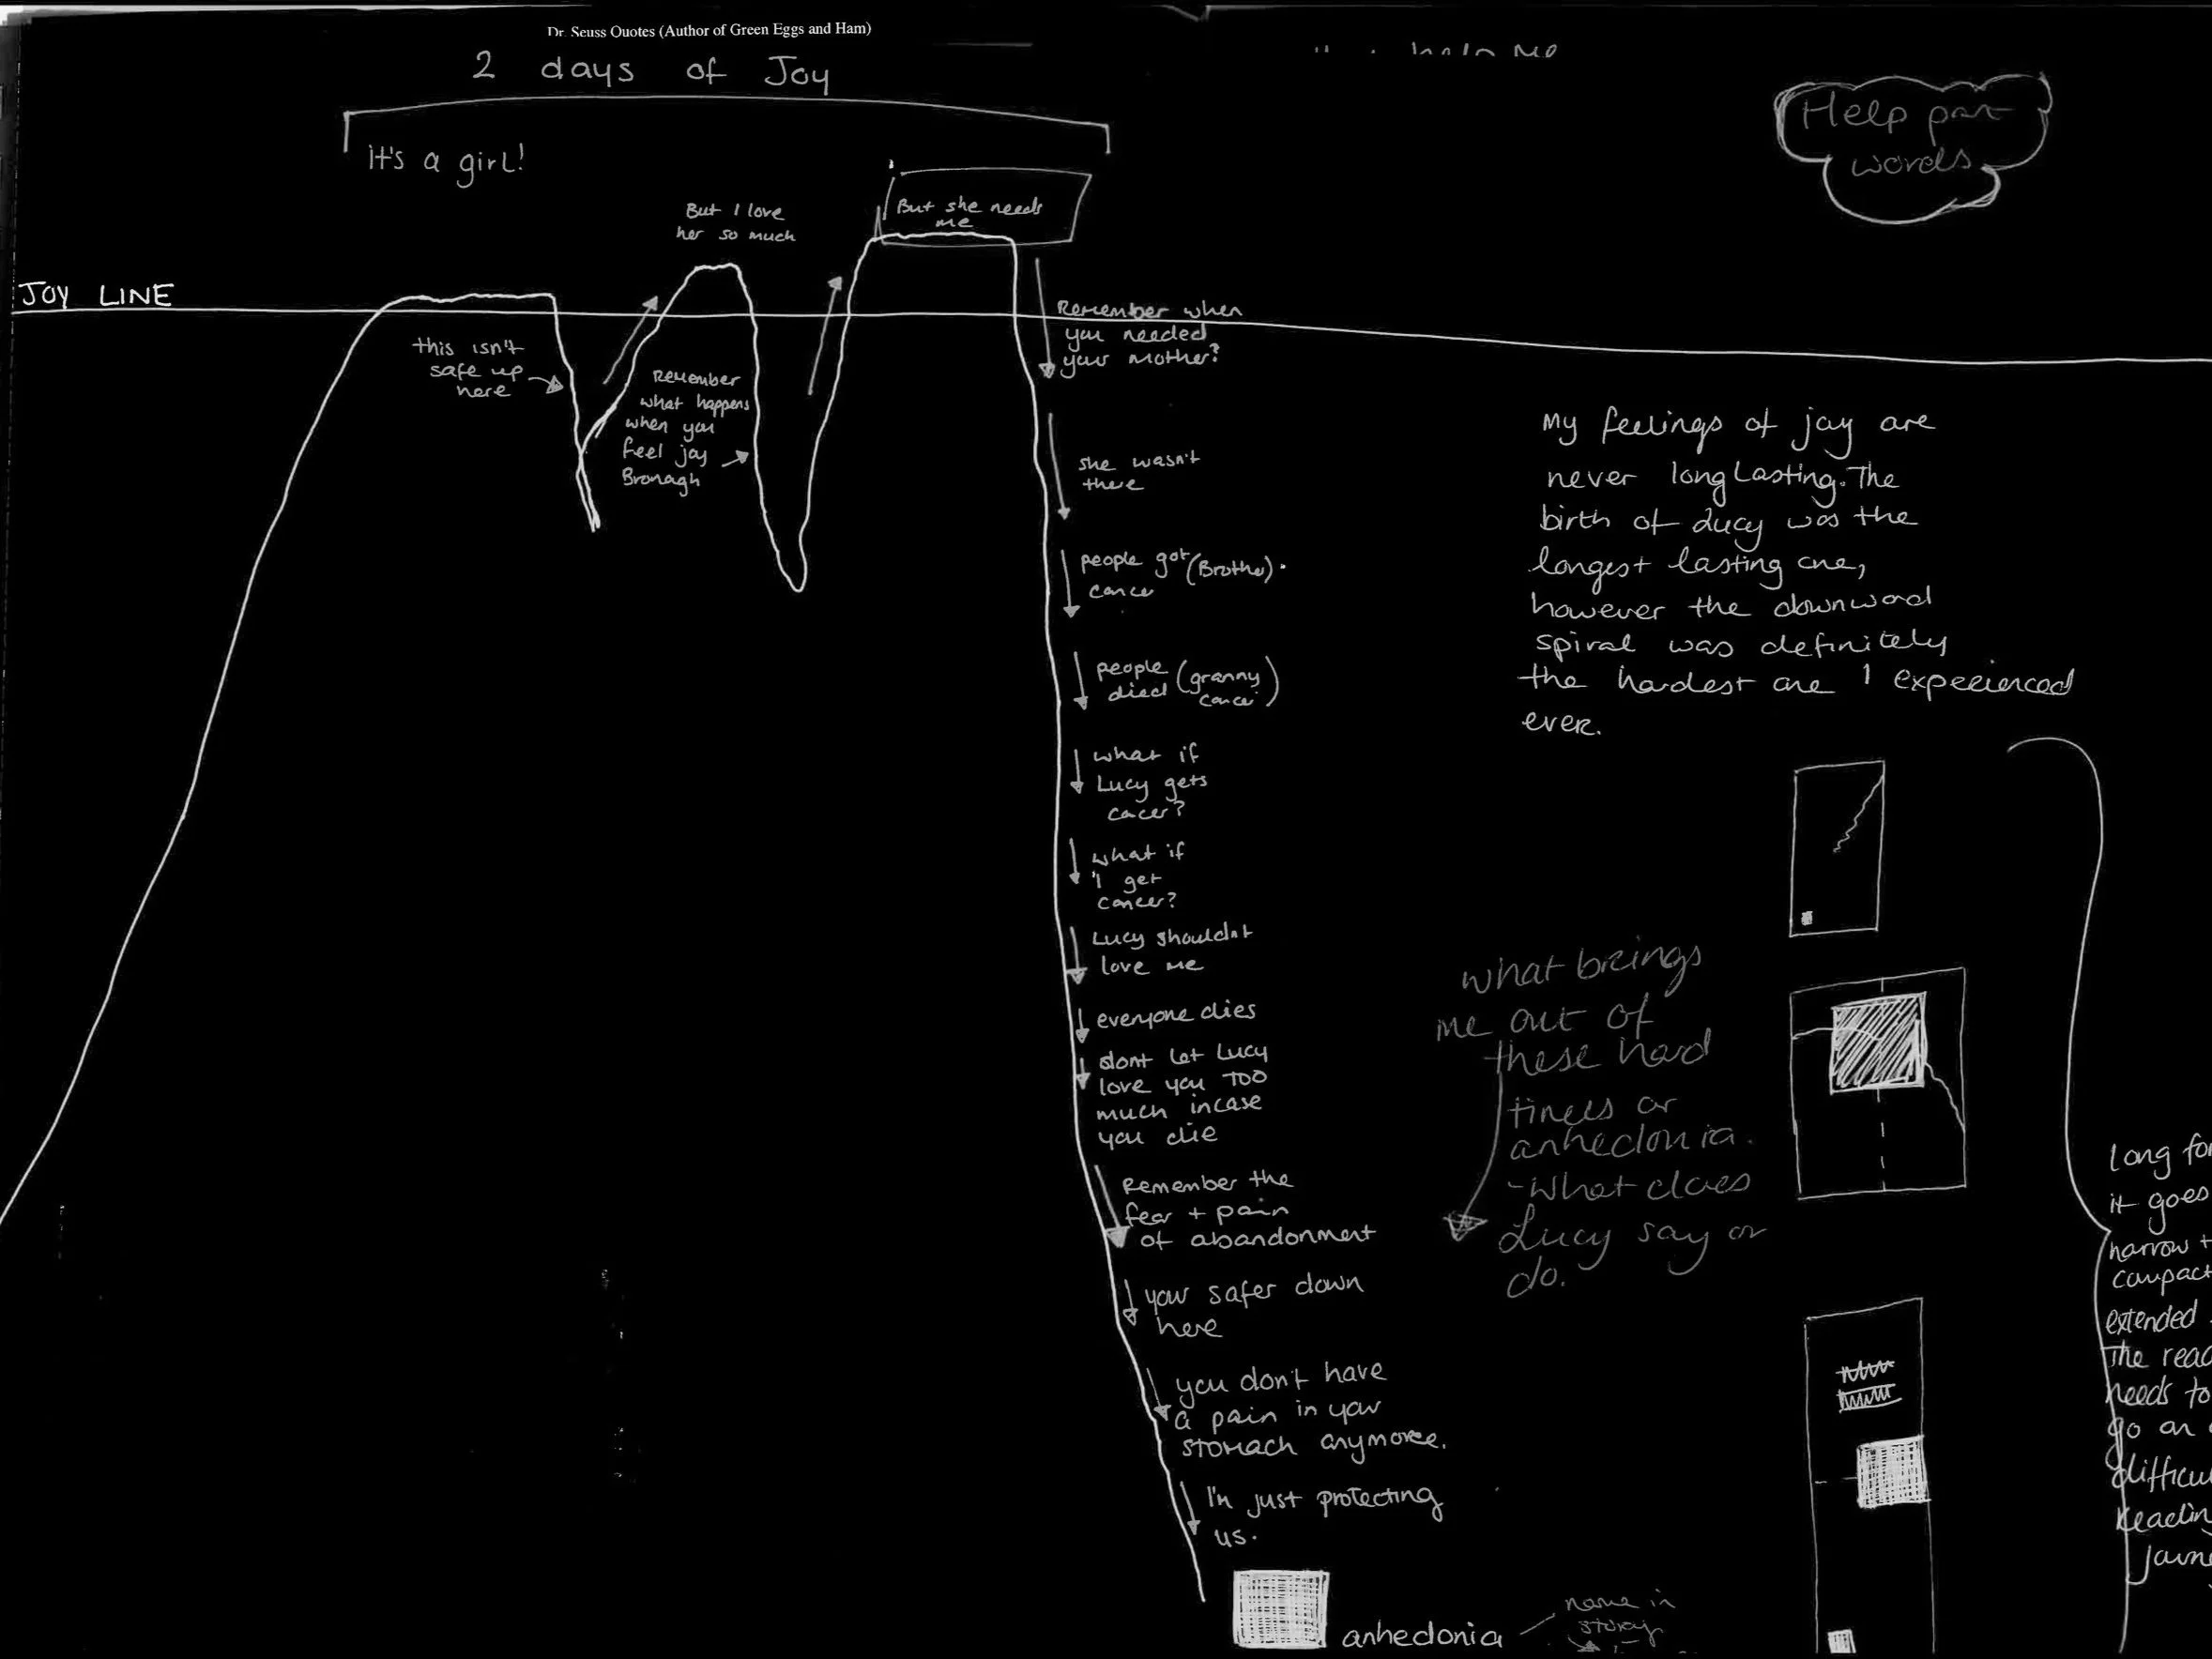 Dr. Seuss Quotes (Author of Green Eggs and Ham)
2 days of Joy
It's a girl!
But I love
her so much
But she needs
me
JOY LINE
this isn't
safe up
here
Remember
what happens
when you
feel joy
Bronagh
Remember when
you needed
your mother?
she wasn't
there
people got (Brother).
cancer
people (granny
died cancer)
what if
Lucy gets
cacer?
what if
I get
cancer?
Lucy shouldnt
love me
everyone dies
dont let Lucy
love you TOO
much incase
you die
Remember the
fear + pain
of abandonment
your safer down
here
you don't have
a pain in your
stomach anymore.
I'm just protecting
us.
anhedonia
name in
story
help me
Help part
words
My feelings of joy are
never long lasting. The
birth of Lucy was the
longest lasting one,
however the downward
spiral was definitely
the hardest one I experienced
ever.
what brings
me out of
these hard
times or
anhedonia.
- What does
Lucy say or
do.
long
it goes
narrow +
compact
extended
The
needs to
go on